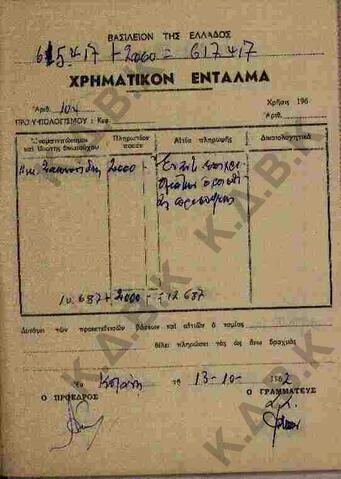 ΒΑΣΙΛΕΙΟΝ ΤΗΣ ΕΛΛΑΔΟΣ
615.417 + 2000 = 617417
ΧΡΗΜΑΤΙΚΟΝ ΕΝΤΑΛΜΑ
Ἀριθ. 104 Χρῆσις 196
ΠΡΟΫΠΟΛΟΓΙΣΜΟΥ : Κεφ. Ἀριθ.
Ὀνοματεπώνυμον καὶ ἰδιότης δικαιούχου
Πληρωτέον ποσὸν
Αἰτία πληρωμῆς
Δικαιολογητικά
2000
10.687 + 2000 = 12687
Δυνάμει τῶν προεκτεθεισῶν βάσεων καὶ αἰτιῶν ὁ ταμίας
θέλει πληρώσει τὰς ὡς ἄνω δραχμὰς
Ἐν Κοζάνῃ τῇ 13-10-1962
Ο ΠΡΟΕΔΡΟΣ Ο ΓΡΑΜΜΑΤΕΥΣ
Κ.Δ.Β.Κ